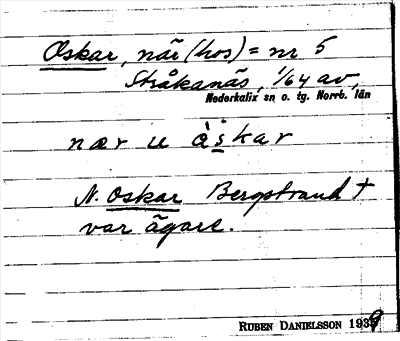 Oskar, när (hos) = nr 5
Stråkanäs, 1/64 av,
Nederkalix sn o. tg. Norrb. län
nær u åskar
N. Oskar Bergstrand †
var ägare.
RUBEN DANIELSSON 1939